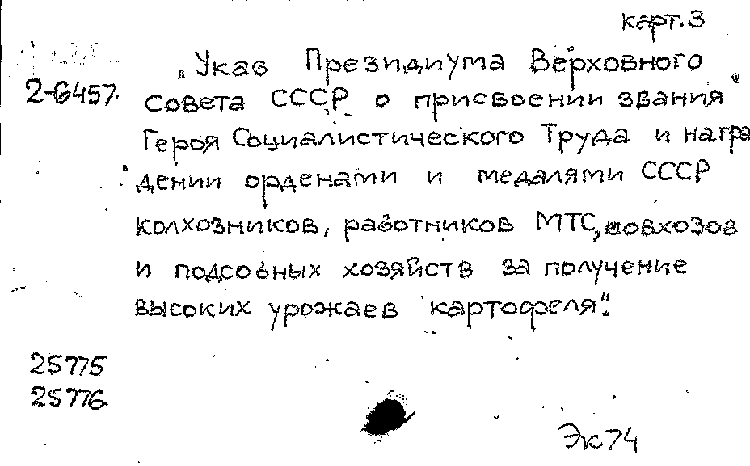 карт.3
„Указ Президиума Верховного
2-6457. Совета СССР о присвоении звания
Героя Социалистического Труда и награ
дении орденами и медалями СССР
колхозников, работников МТС, совхозов
и подсобных хозяйств за получение
высоких урожаев картофеля".
25775
25776
Эк74